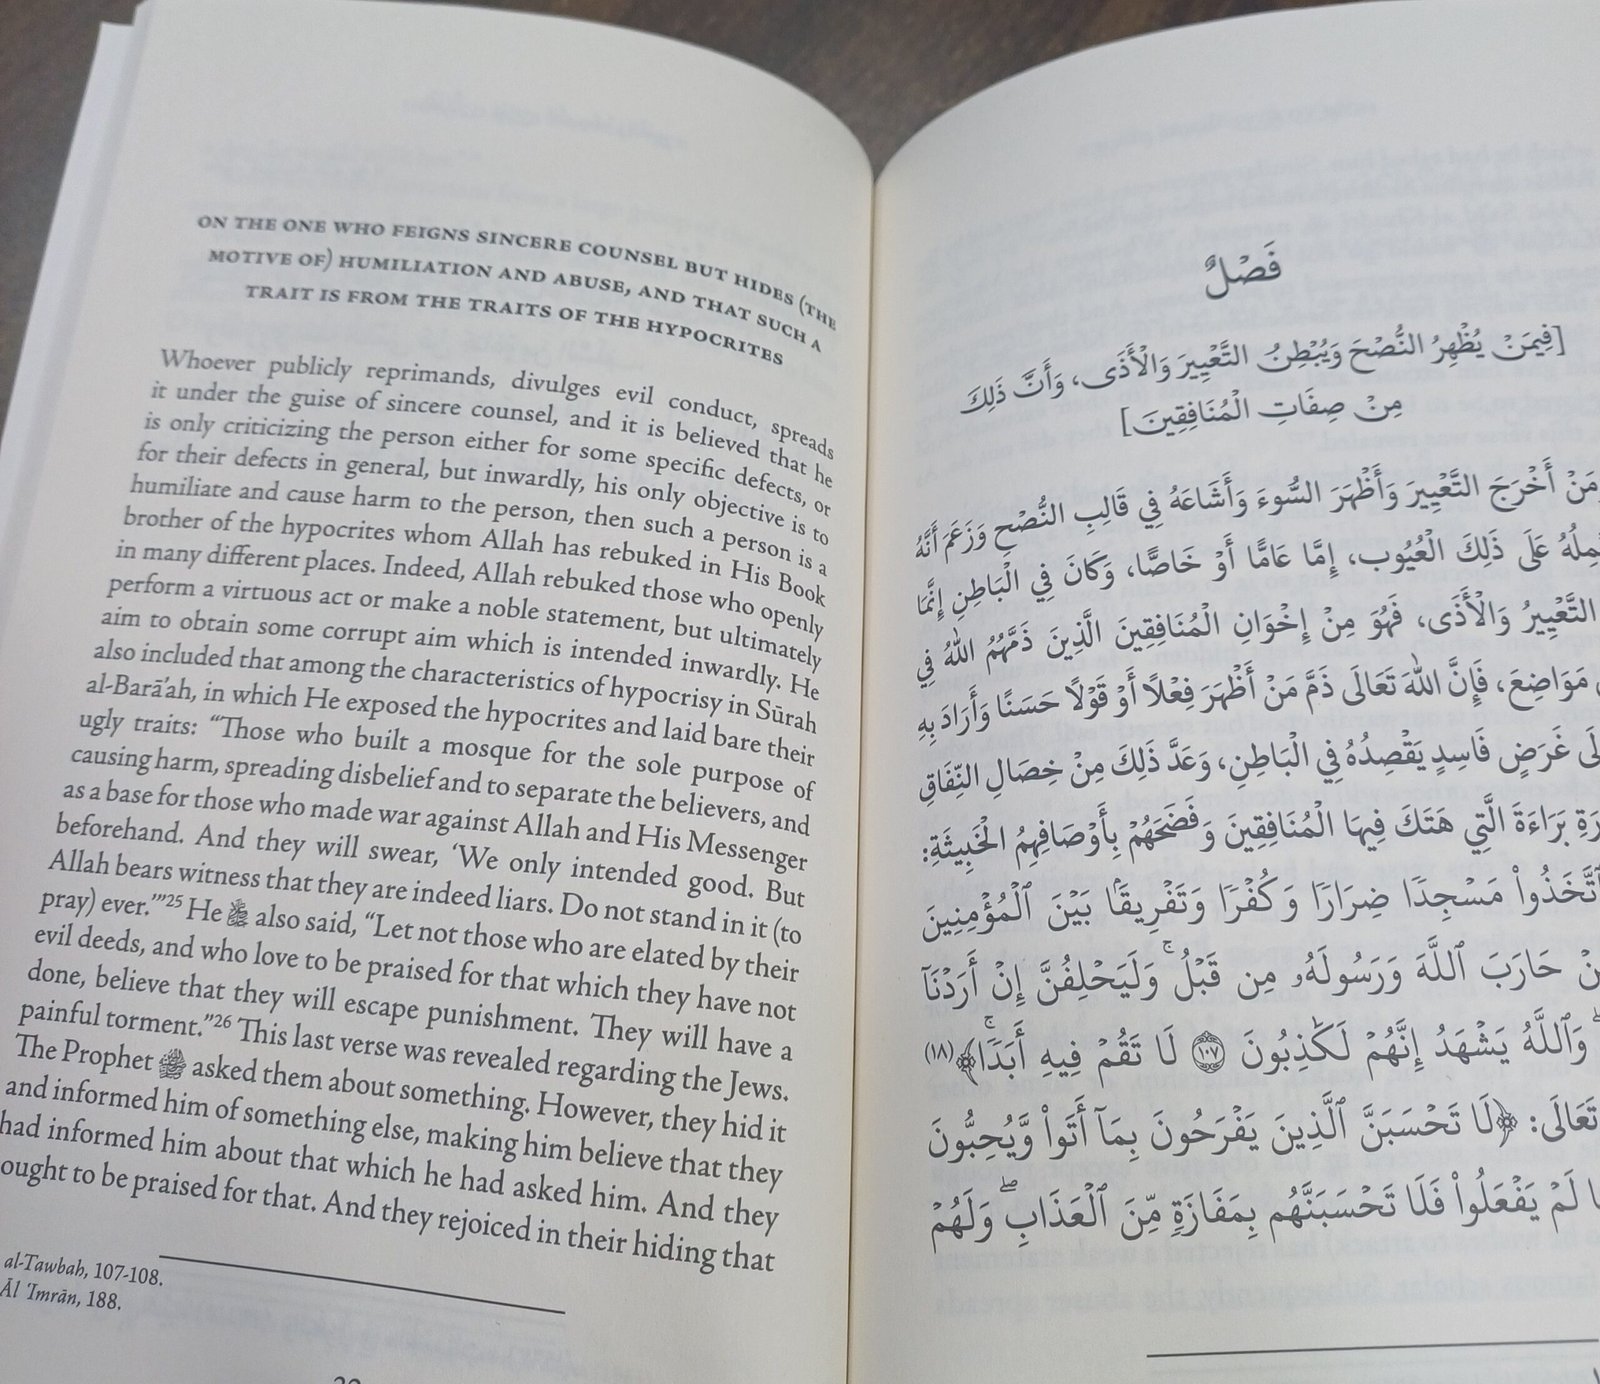 ON THE ONE WHO FEIGNS SINCERE COUNSEL BUT HIDES (THE
MOTIVE OF) HUMILIATION AND ABUSE, AND THAT SUCH A
TRAIT IS FROM THE TRAITS OF THE HYPOCRITES
Whoever publicly reprimands, divulges evil conduct, spreads
it under the guise of sincere counsel, and it is believed that he
is only criticizing the person either for some specific defects, or
for their defects in general, but inwardly, his only objective is to
humiliate and cause harm to the person, then such a person is a
brother of the hypocrites whom Allah has rebuked in His Book
in many different places. Indeed, Allah rebuked those who openly
perform a virtuous act or make a noble statement, but ultimately
aim to obtain some corrupt aim which is intended inwardly. He
also included that among the characteristics of hypocrisy in Sūrah
al-Barā'ah, in which He exposed the hypocrites and laid bare their
ugly traits: “Those who built a mosque for the sole purpose of
causing harm, spreading disbelief and to separate the believers, and
as a base for those who made war against Allah and His Messenger
beforehand. And they will swear, ‘We only intended good. But
Allah bears witness that they are indeed liars. Do not stand in it (to
pray) ever.’”25 He ﷻ also said, “Let not those who are elated by their
evil deeds, and who love to be praised for that which they have not
done, believe that they will escape punishment. They will have a
painful torment.”26 This last verse was revealed regarding the Jews.
The Prophet ﷺ asked them about something. However, they hid it
and informed him of something else, making him believe that they
had informed him about that which he had asked him. And they
ought to be praised for that. And they rejoiced in their hiding that
al-Tawbah, 107-108.
Āl ʿImrān, 188.
فَصْلٌ
[فِيمَنْ يُظْهِرُ النُّصْحَ وَيُبْطِنُ التَّعْيِيرَ وَالْأَذَى، وَأَنَّ ذَلِكَ
مِنْ صِفَاتِ الْمُنَافِقِينَ]
وَمَنْ أَخْرَجَ التَّعْيِيرَ وَأَظْهَرَ السُّوءَ وَأَشَاعَهُ فِي قَالِبِ النُّصْحِ وَزَعَمَ أَنَّهُ
عَلَى ذَلِكَ الْعُيُوب، إِمَّا عَامًّا أَوْ خَاصًّا، وَكَانَ فِي الْبَاطِنِ إِنَّمَا
التَّعْيِيرُ وَالْأَذَى، فَهُوَ مِنْ إِخْوَانِ الْمُنَافِقِينَ الَّذِينَ ذَمَّهُمُ اللهُ فِي
مَوَاضِعَ، فَإِنَّ اللهَ تَعَالَى ذَمَّ مَنْ أَظْهَرَ فِعْلًا أَوْ قَوْلًا حَسَنًا وَأَرَادَ بِهِ
غَرَضٍ فَاسِدٍ يَقْصِدُهُ فِي الْبَاطِنِ، وَعَدَّ ذَلِكَ مِنْ خِصَالِ النِّفَاقِ
بَرَاءَةَ الَّتِي هَتَكَ فِيهَا الْمُنَافِقِينَ وَفَضَحَهُمْ بِأَوْصَافِهِمُ الْخَبِيثَةِ:
ٱتَّخَذُواْ مَسْجِدًا ضِرَارًا وَكُفْرًا وَتَفْرِيقًۢا بَيْنَ ٱلْمُؤْمِنِينَ
حَارَبَ ٱللَّهَ وَرَسُولَهُۥ مِن قَبْلُ ۚ وَلَيَحْلِفُنَّ إِنْ أَرَدْنَآ
وَٱللَّهُ يَشْهَدُ إِنَّهُمْ لَكَٰذِبُونَ ١٠٧ لَا تَقُمْ فِيهِ أَبَدًا ۚ﴾ (١٨)
تَعَالَى: ﴿لَا تَحْسَبَنَّ ٱلَّذِينَ يَفْرَحُونَ بِمَآ أَتَواْ وَّيُحِبُّونَ
لَمْ يَفْعَلُواْ فَلَا تَحْسَبَنَّهُم بِمَفَازَةٍ مِّنَ ٱلْعَذَابِ ۖ وَلَهُمْ